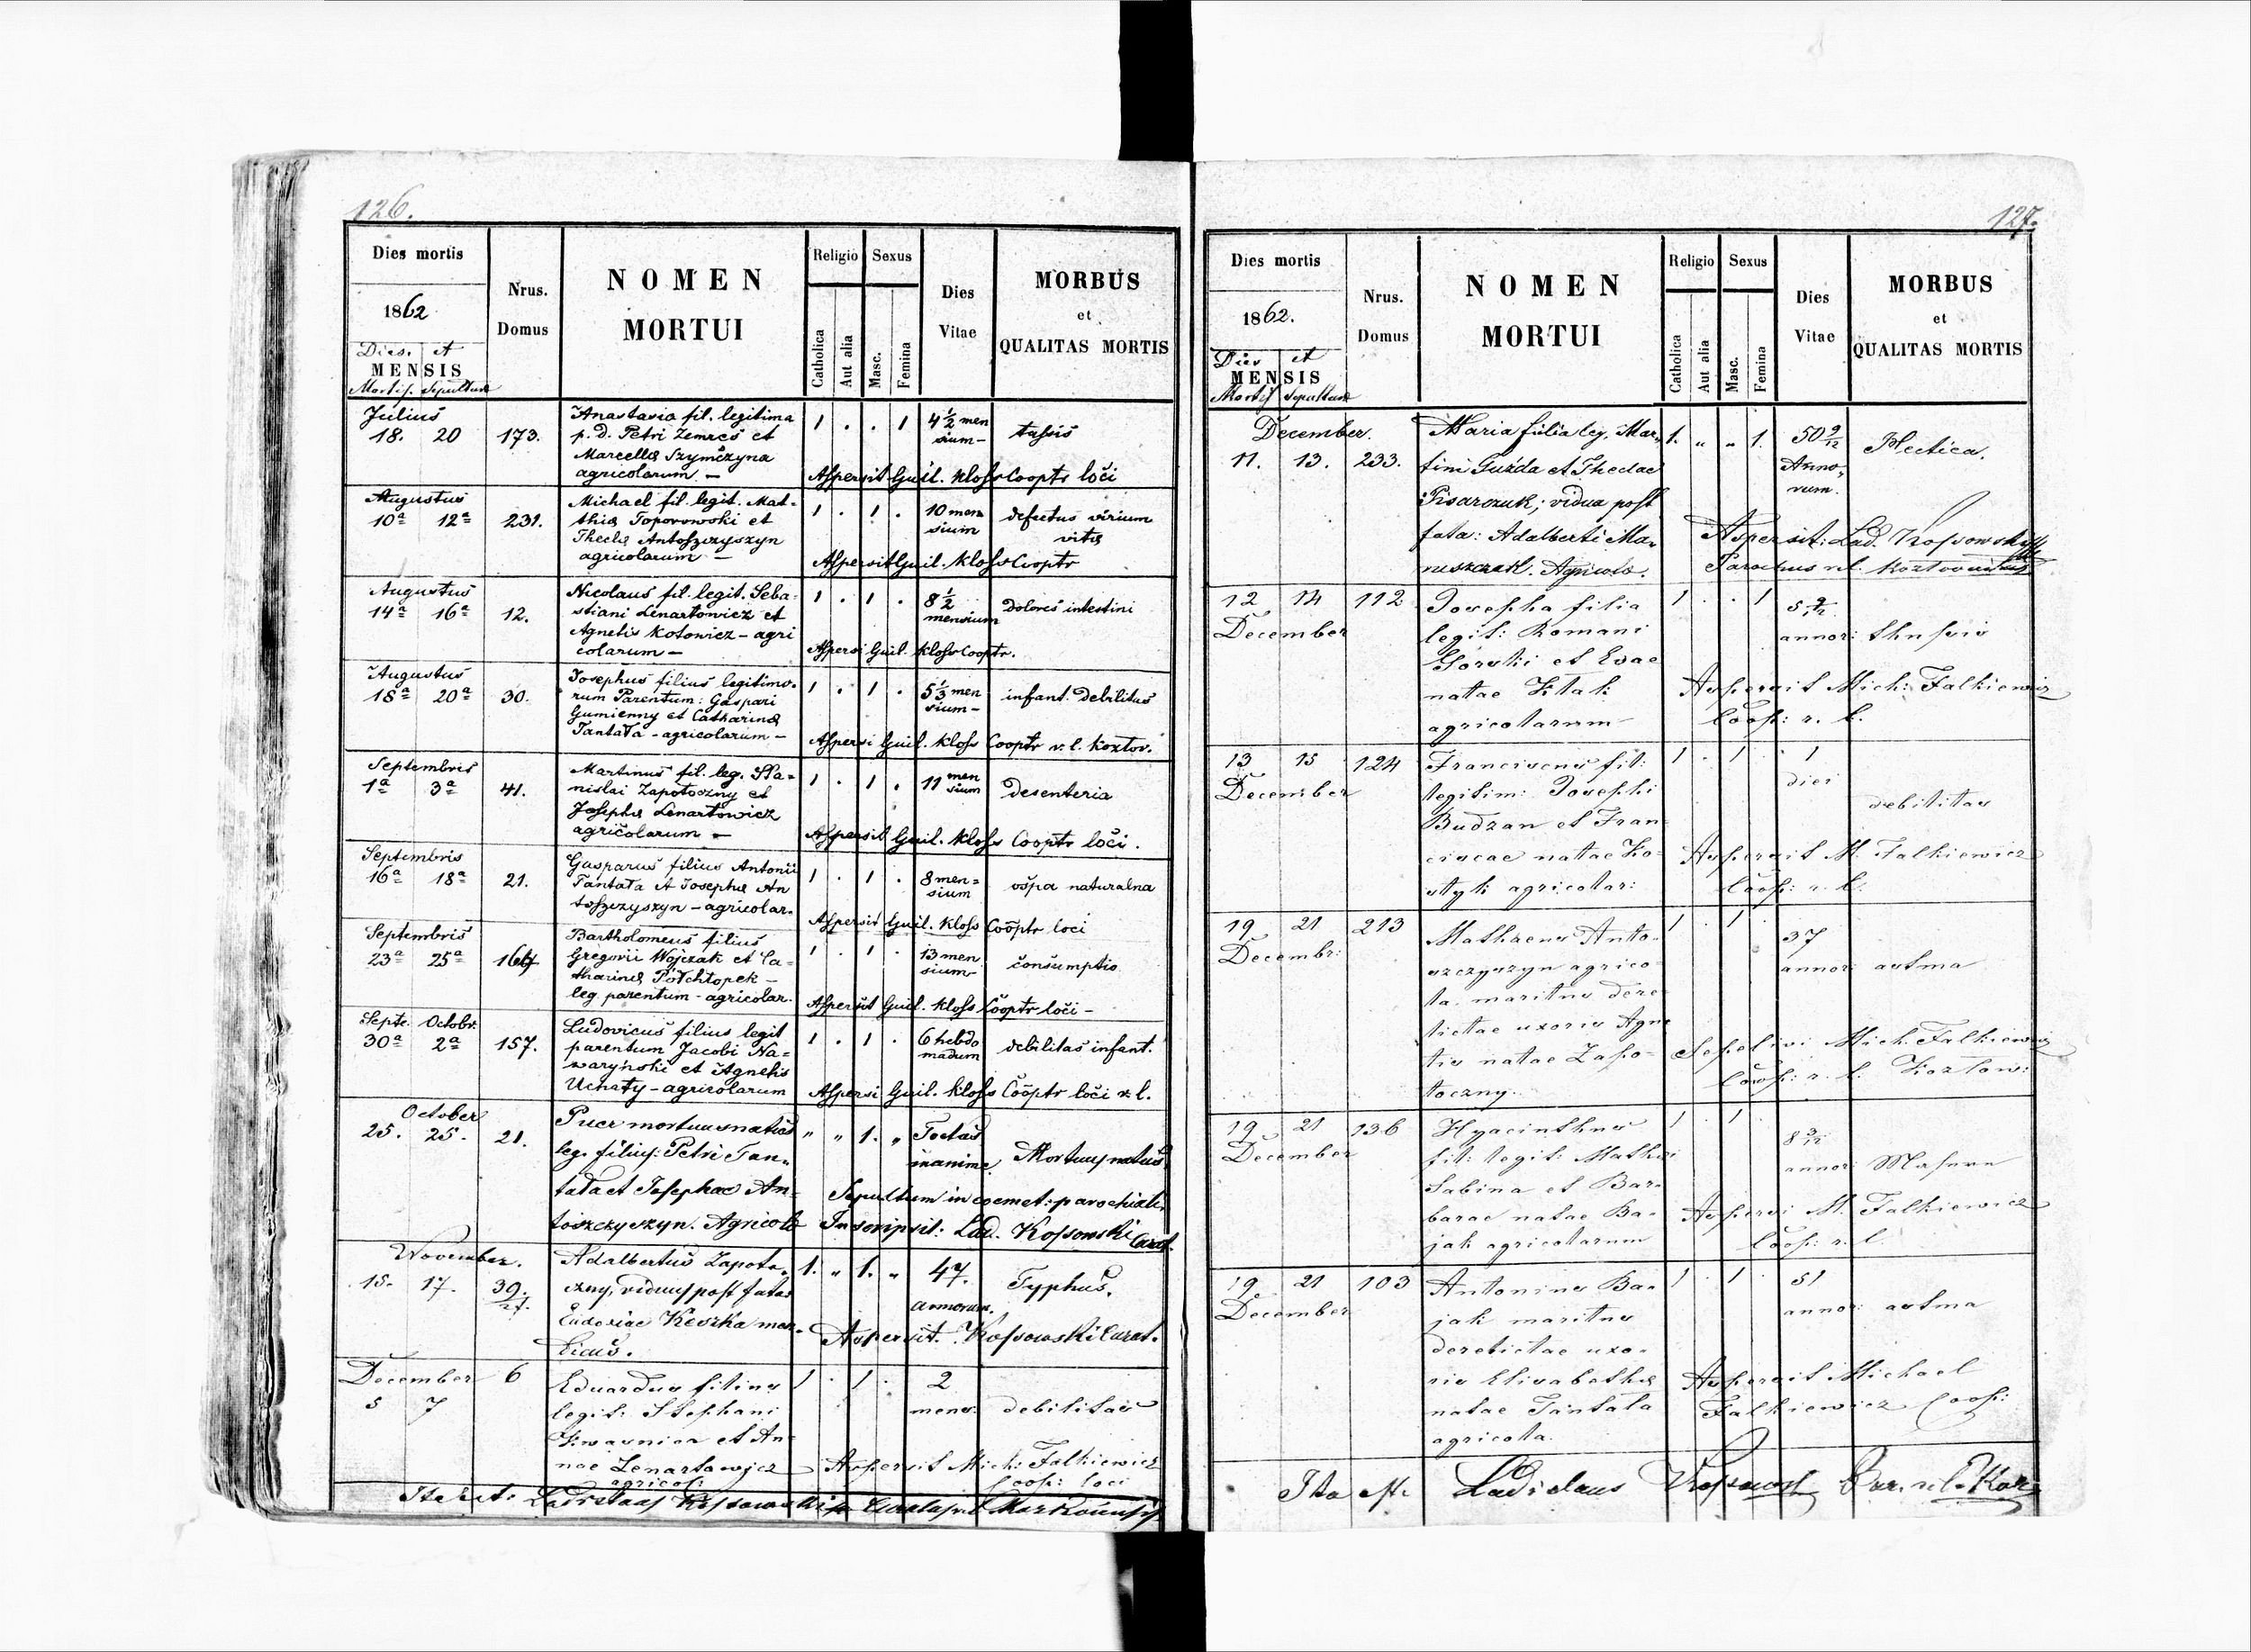 126.
Dies mortis
1862
Dies. et
MENSIS
Mortis. Sepulturae
Nrus.
Domus
NOMEN
MORTUI
Religio
Catholica
Aut alia
Sexus
Masc.
Femina
Dies
Vitae
MORBUS
et
QUALITAS MORTIS
Julius
18. 20 173.
Anastasia fil. legitima
p. d. Petri Zemres et
Marcella Szymczyna
agricolarum –
1 . . 1
4 1/2 men
sium –
tussis
Aspersit Guil. Kloss Cooptr loci
Augustus
10a 12a 231.
Michael fil. legit. Mat-
thiæ Toporowski et
Theclæ Antoszczyszyn
agricolarum –
1 . 1 .
10 men
sium
defectus virium
vitæ
Aspersit Guil. Kloss Cooptr
Augustus
14a 16a 12.
Nicolaus fil. legit. Seba-
stiani Lenartowicz et
Agnetis Kotowicz – agri
colarum –
1 . 1 .
8 1/2
mensium
dolores intestini
Aspersi Guil. Kloss Cooptr.
Augustus
18a 20a 30.
Josephus filius legitimo-
rum Parentum: Gaspari
Gumienny et Catharinæ
Tantała – agricolarum –
1 . 1 .
5 1/3 men
sium –
infant. debilitas
Aspersi Guil. Kloss Cooptr r. l. Koztov.
Septembris
1a 3a 41.
Martinus fil. leg. Sta=
nislai Zapotoczny et
Josephæ Lenartowicz
agricolarum –
1 . 1 .
11 men
sium
desenteria
Aspersit Guil. Kloss Cooptr loci.
Septembris
16a 18a 21.
Gasparus filius Antonii
Tantała et Josephæ An
toszczyszyn – agricolar.
1 . 1 .
8 men=
sium
ospa naturalna
Aspersit Guil. Kloss Cooptr loci
Septembris
23a 25a
Bartholomeus filius
Gregorii Wojczak et Ca=
tharinæ Półchłopek –
leg parentum – agricolar.
1 . 1 .
13 men
sium
consumptio
Aspersit Guil. Kloss Cooptr loci –
Septr. Octobr.
30a 2a 157.
Ludovicus filius legit
parentum Jacobi Na=
zaryński et Agnetis
Uchaty – agricolarum
1 . 1 .
6 hebdo
madum
debilitas infant.
Aspersi Guil. Kloss Cooptr loci r. l.
October
25. 25. 21.
Puer mortuus natus
leg. filius: Petri Tan-
tała et Josephae An-
toszczyszyn. Agricolæ
„ „ 1. „
Foetus
inanime.
Mortuus natus.
Sepultum in coemet: parochiali.
Inscripsit: Lad. Kossowski Curat.
November.
15. 17. 39.
27.
Adalbertus Zapoto-
czny, viduus post fata
Eudoxiae Keszka men-
dicus.
1. „ 1. „
47.
annorum.
Typhus.
Aspersit. Kossowski Curat.
December 6
5 7
Eduardus filius
legit: Stephani
Kwasnica et An-
nae Lenartowicz
agricol:
1 . 1 .
2
mens.
debilitas
Aspersit Mich: Falkiewicz
Coop: loci
Ita est: Ladislaus Kossowski
127.
Dies mortis
1862.
Dies et
MENSIS
Mortis Sepulturae
Nrus.
Domus
NOMEN
MORTUI
Religio
Catholica
Aut alia
Sexus
Masc.
Femina
Dies
Vitae
MORBUS
et
QUALITAS MORTIS
December.
11. 13. 233.
Maria filia leg. Mar-
tini Guzda et Theclae
Pisarczuk; vidua post
fata: Adalberti Ma-
ruszczak. Agricola.
1. „ „ 1.
50 9/12
Anno-
rum.
Hectica.
Aspersit: Lad. Kossowski
Parochus r. l. Koztoviensis
12 14 112
December
Josepha filia
legit: Romani
Górski et Evae
natae Ptak
agricolarum
1 . . 1
5 9/12
annor: thussis
Aspersit Mich: Falkiewicz
Coop: r. l.
13 15 124
December
Franciscus fil:
legitim: Josephi
Budzan et Fran-
ciscae natae Ko-
styk agricolar:
1 . 1 .
1
diei
debilitas
Aspersit M. Falkiewicz
Coop: r. l.
19 21 213
Decembr:
Mathaeus Anto-
szczyszyn agrico-
la. maritus dere-
lictae uxoris Agne
tis natae Zapo-
toczny.
1 . 1 .
37
annor: astma
Sepelivi Mich. Falkiewicz
Coop: r. l: Kozłow:
19 21 136
December
Hyacinthus
fil: legit: Mathæi
Sabina et Bar-
barae natae Ba-
jak agricolarum
1 . 1 .
8 3/12
annor:
Aspersi M. Falkiewicz
Coop: r. l.
19 21 103
December
Antonius Ba-
jak maritus
derelictae uxo-
ris Elisabethæ
natae Tantała
agricola.
1 . 1 .
51
annor: astma
Aspersit Michael
Falkiewicz Coop:
Ita est. Ladislaus Kossowski Par. r. l. Koz